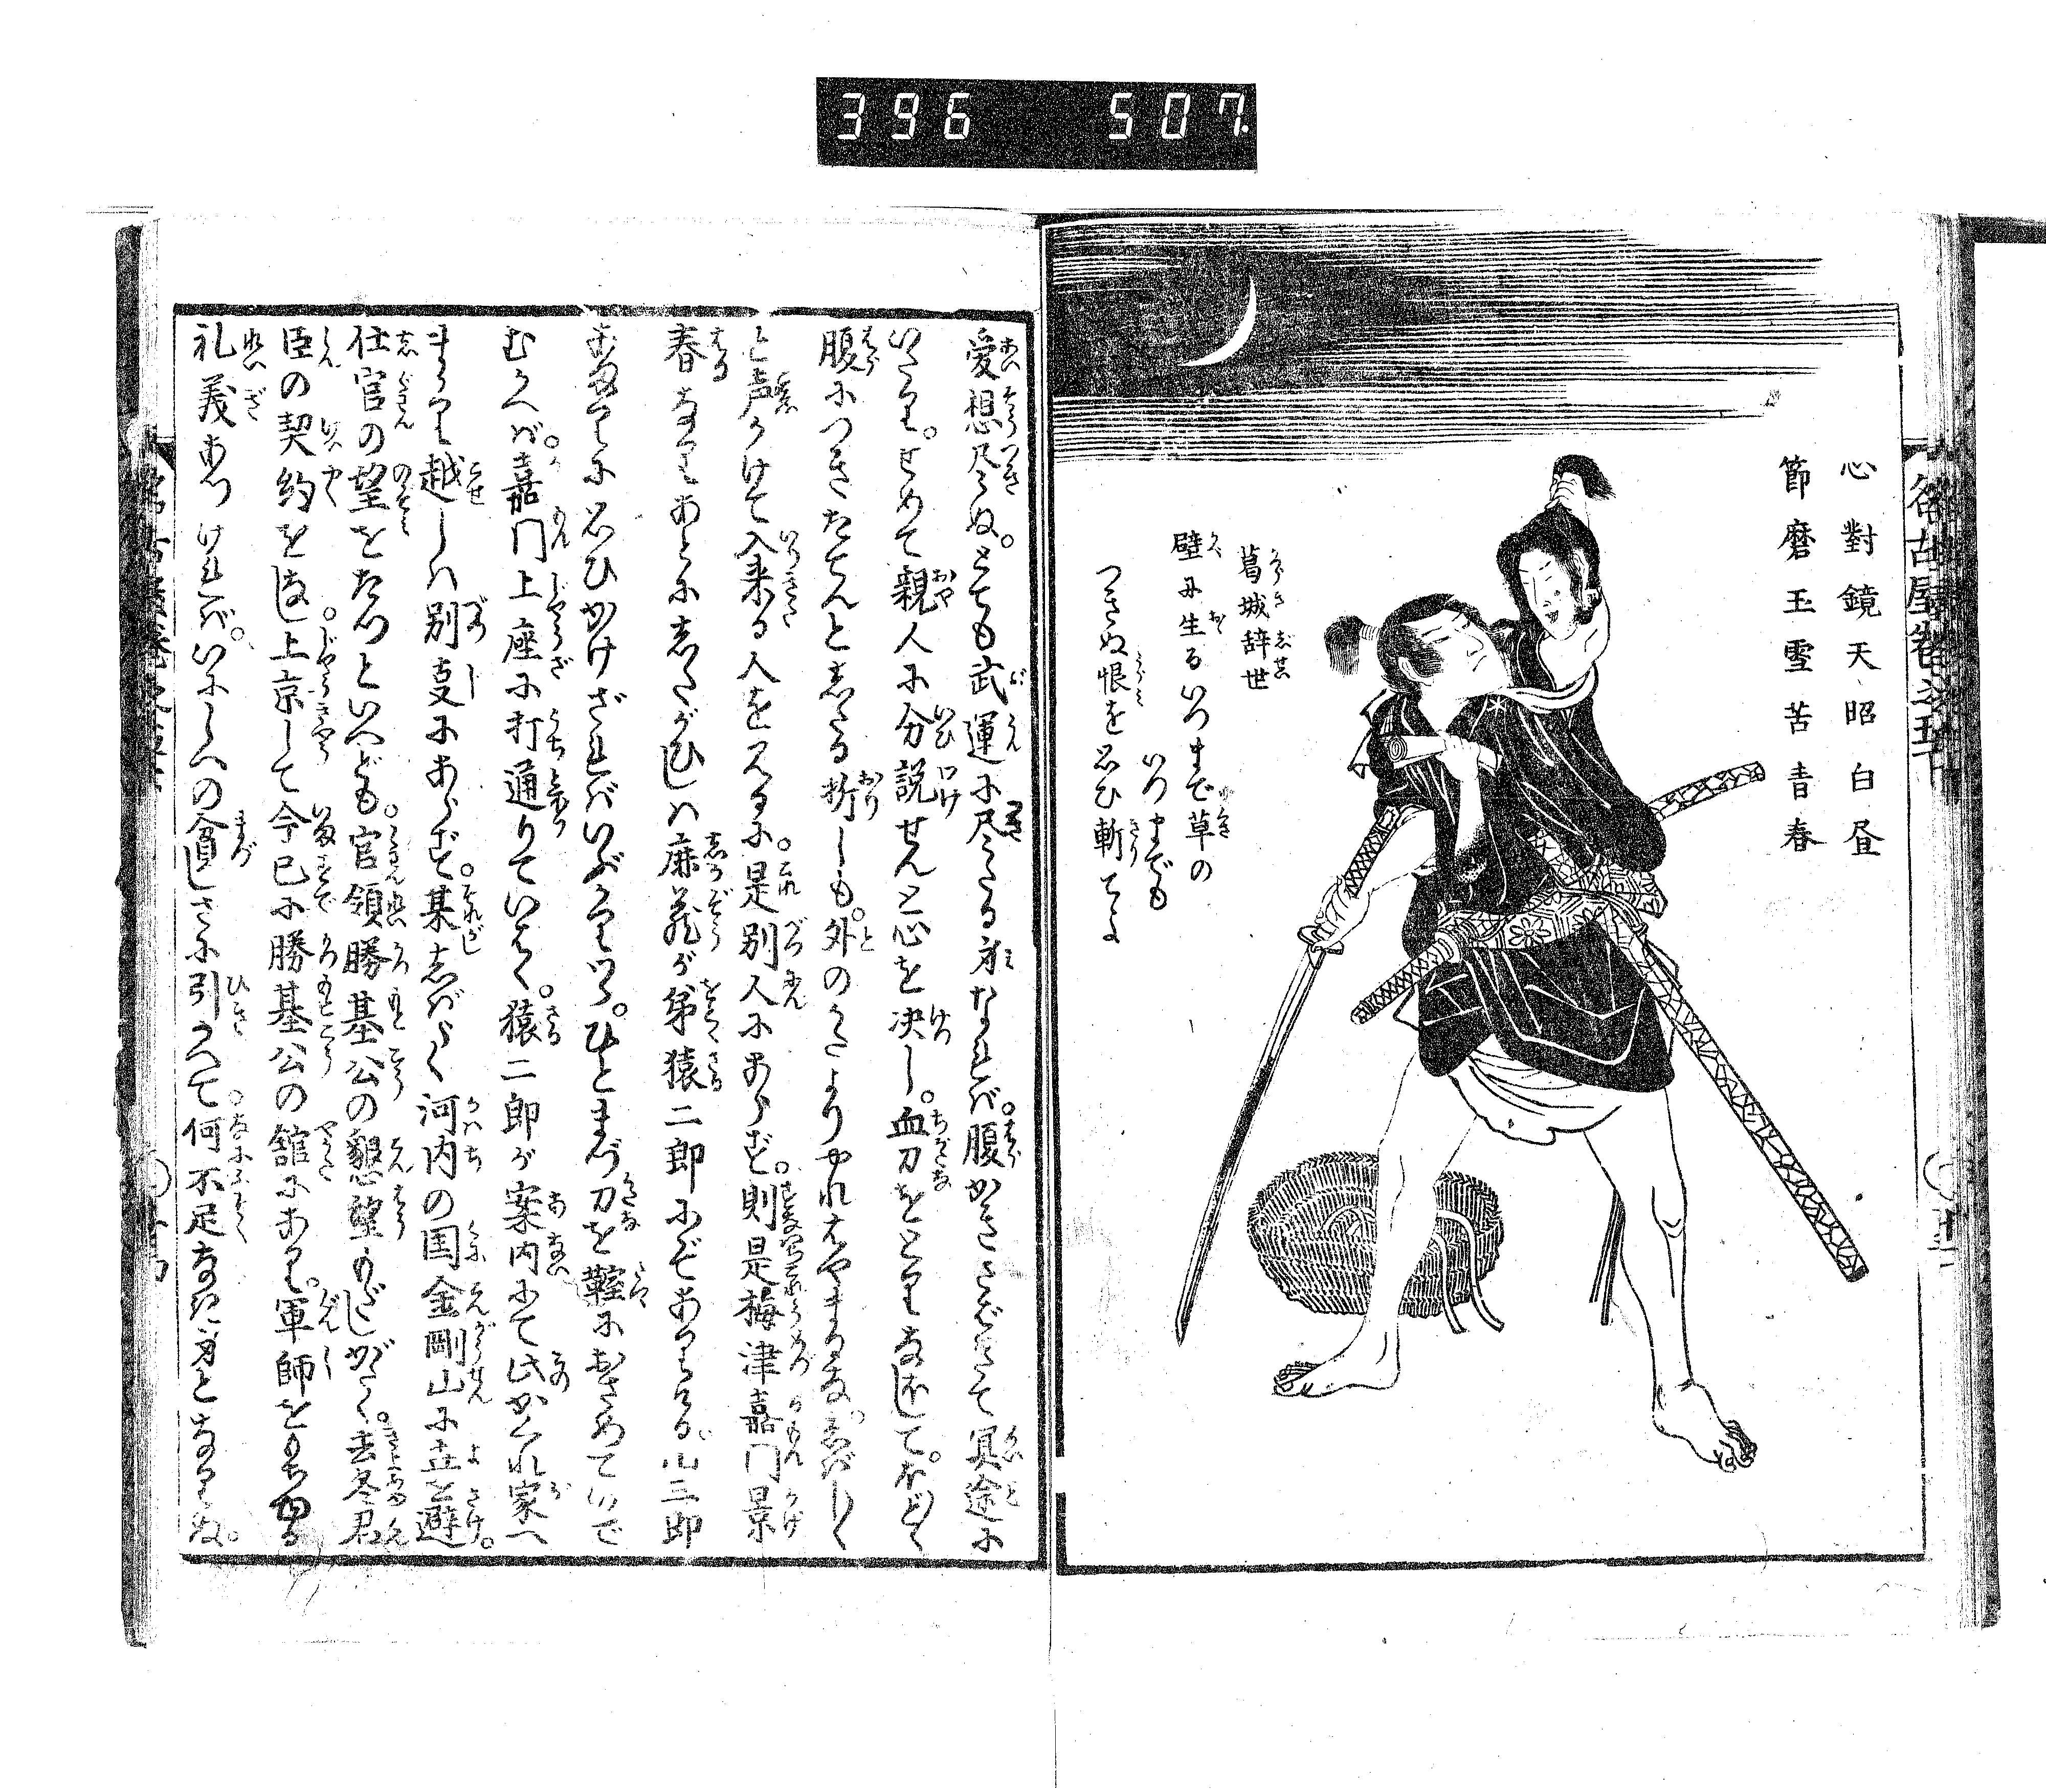 396 507.
心對鏡天昭白昼
節磨玉雪苦青春
葛城辞世
壁に生るいつまで草の
いつまでも
つきぬ恨を思ひ斬てよ
愛想尽ぬ。とても武運に尽たる身なれば。腹かきさばきて冥途に
いたり。せめて親人に分説せんと心を决し。血刀をとりなほして。ほどなく
腹につきたてんとしたる折しも。外のかたよりやれはやまるな。しばしく
と声かけて入来る人を見るに。是別人にあらず。則是梅津嘉門景
春なりあとにしたがひしは鹿蔵が弟猿二郎にぞありける。山三郎
あまりに思ひかけざればいぶかりつゝ。ひとまづ刀を鞘におさめていで
むかへば。嘉門上座に打通りていはく。猿二郎が案内にて此かくれ家へ
まうで越しは別事にあらず。某しばらく河内の国金剛山に世を避。
仕官の望をたつといへども。官領勝基公の懇望もだしがたく。去冬君
臣の契約をなし。上京して今已に勝基公の舘にあり。軍師をもち得る
礼義あつければ。いにしへの貧しさに引かへて何不足なき身となりぬ。